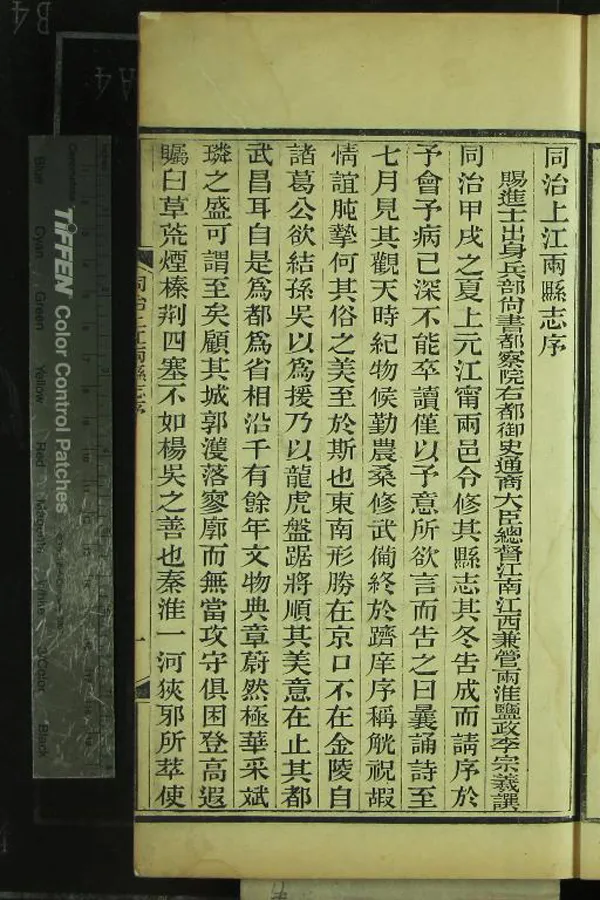 同治上江兩縣志序
賜進士出身兵部尙書都察院右都御史通商大臣總督江南江西兼管兩淮鹽政李宗羲譔
同治甲戌之夏上元江甯兩邑令修其縣志其冬告成而請序於
予會予病已深不能卒讀僅以予意所欲言而告之曰曩誦詩至
七月見其觀天時紀物候勤農桑修武備終於躋庠序稱觥祝嘏
情誼肫摯何其俗之美至於斯也東南形勝在京口不在金陵自
諸葛公欲結孫吳以爲援乃以龍虎盤踞將順其美意在止其都
武昌耳自是爲都爲省相沿千有餘年文物典章蔚然極華采斌
璘之盛可謂至矣顧其城郭濩落寥廓而無當攻守俱困登高遐
矚曰草荒煙榛荆四塞不如楊吳之善也秦淮一河狹邪所萃使
同治上江兩縣志序
一
TIFFEN Color Control Patches
Blue
Cyan
Green
Yellow
Red
Magenta
White
3/Color
Black
A4
B4